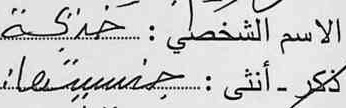 الاسم الشخصي : خديجة
ذكر - أنثى : جنسيتها: